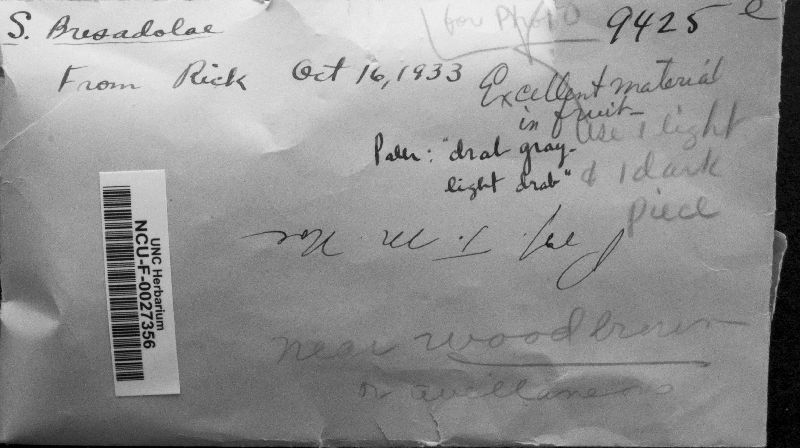 S. Bresadolae
for Photo
9425 e
From Rick Oct 16, 1933
Excellent material
in fruit
Use 1 light
& 1 dark
piece
Paler: "drab gray-
light drab"
UNC Herbarium
NCU-F-0027356
near wood brown
or avellaneous